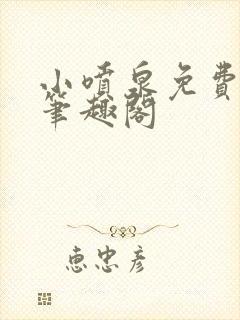 小噴泉免費
筆趣閣
惠忠彥